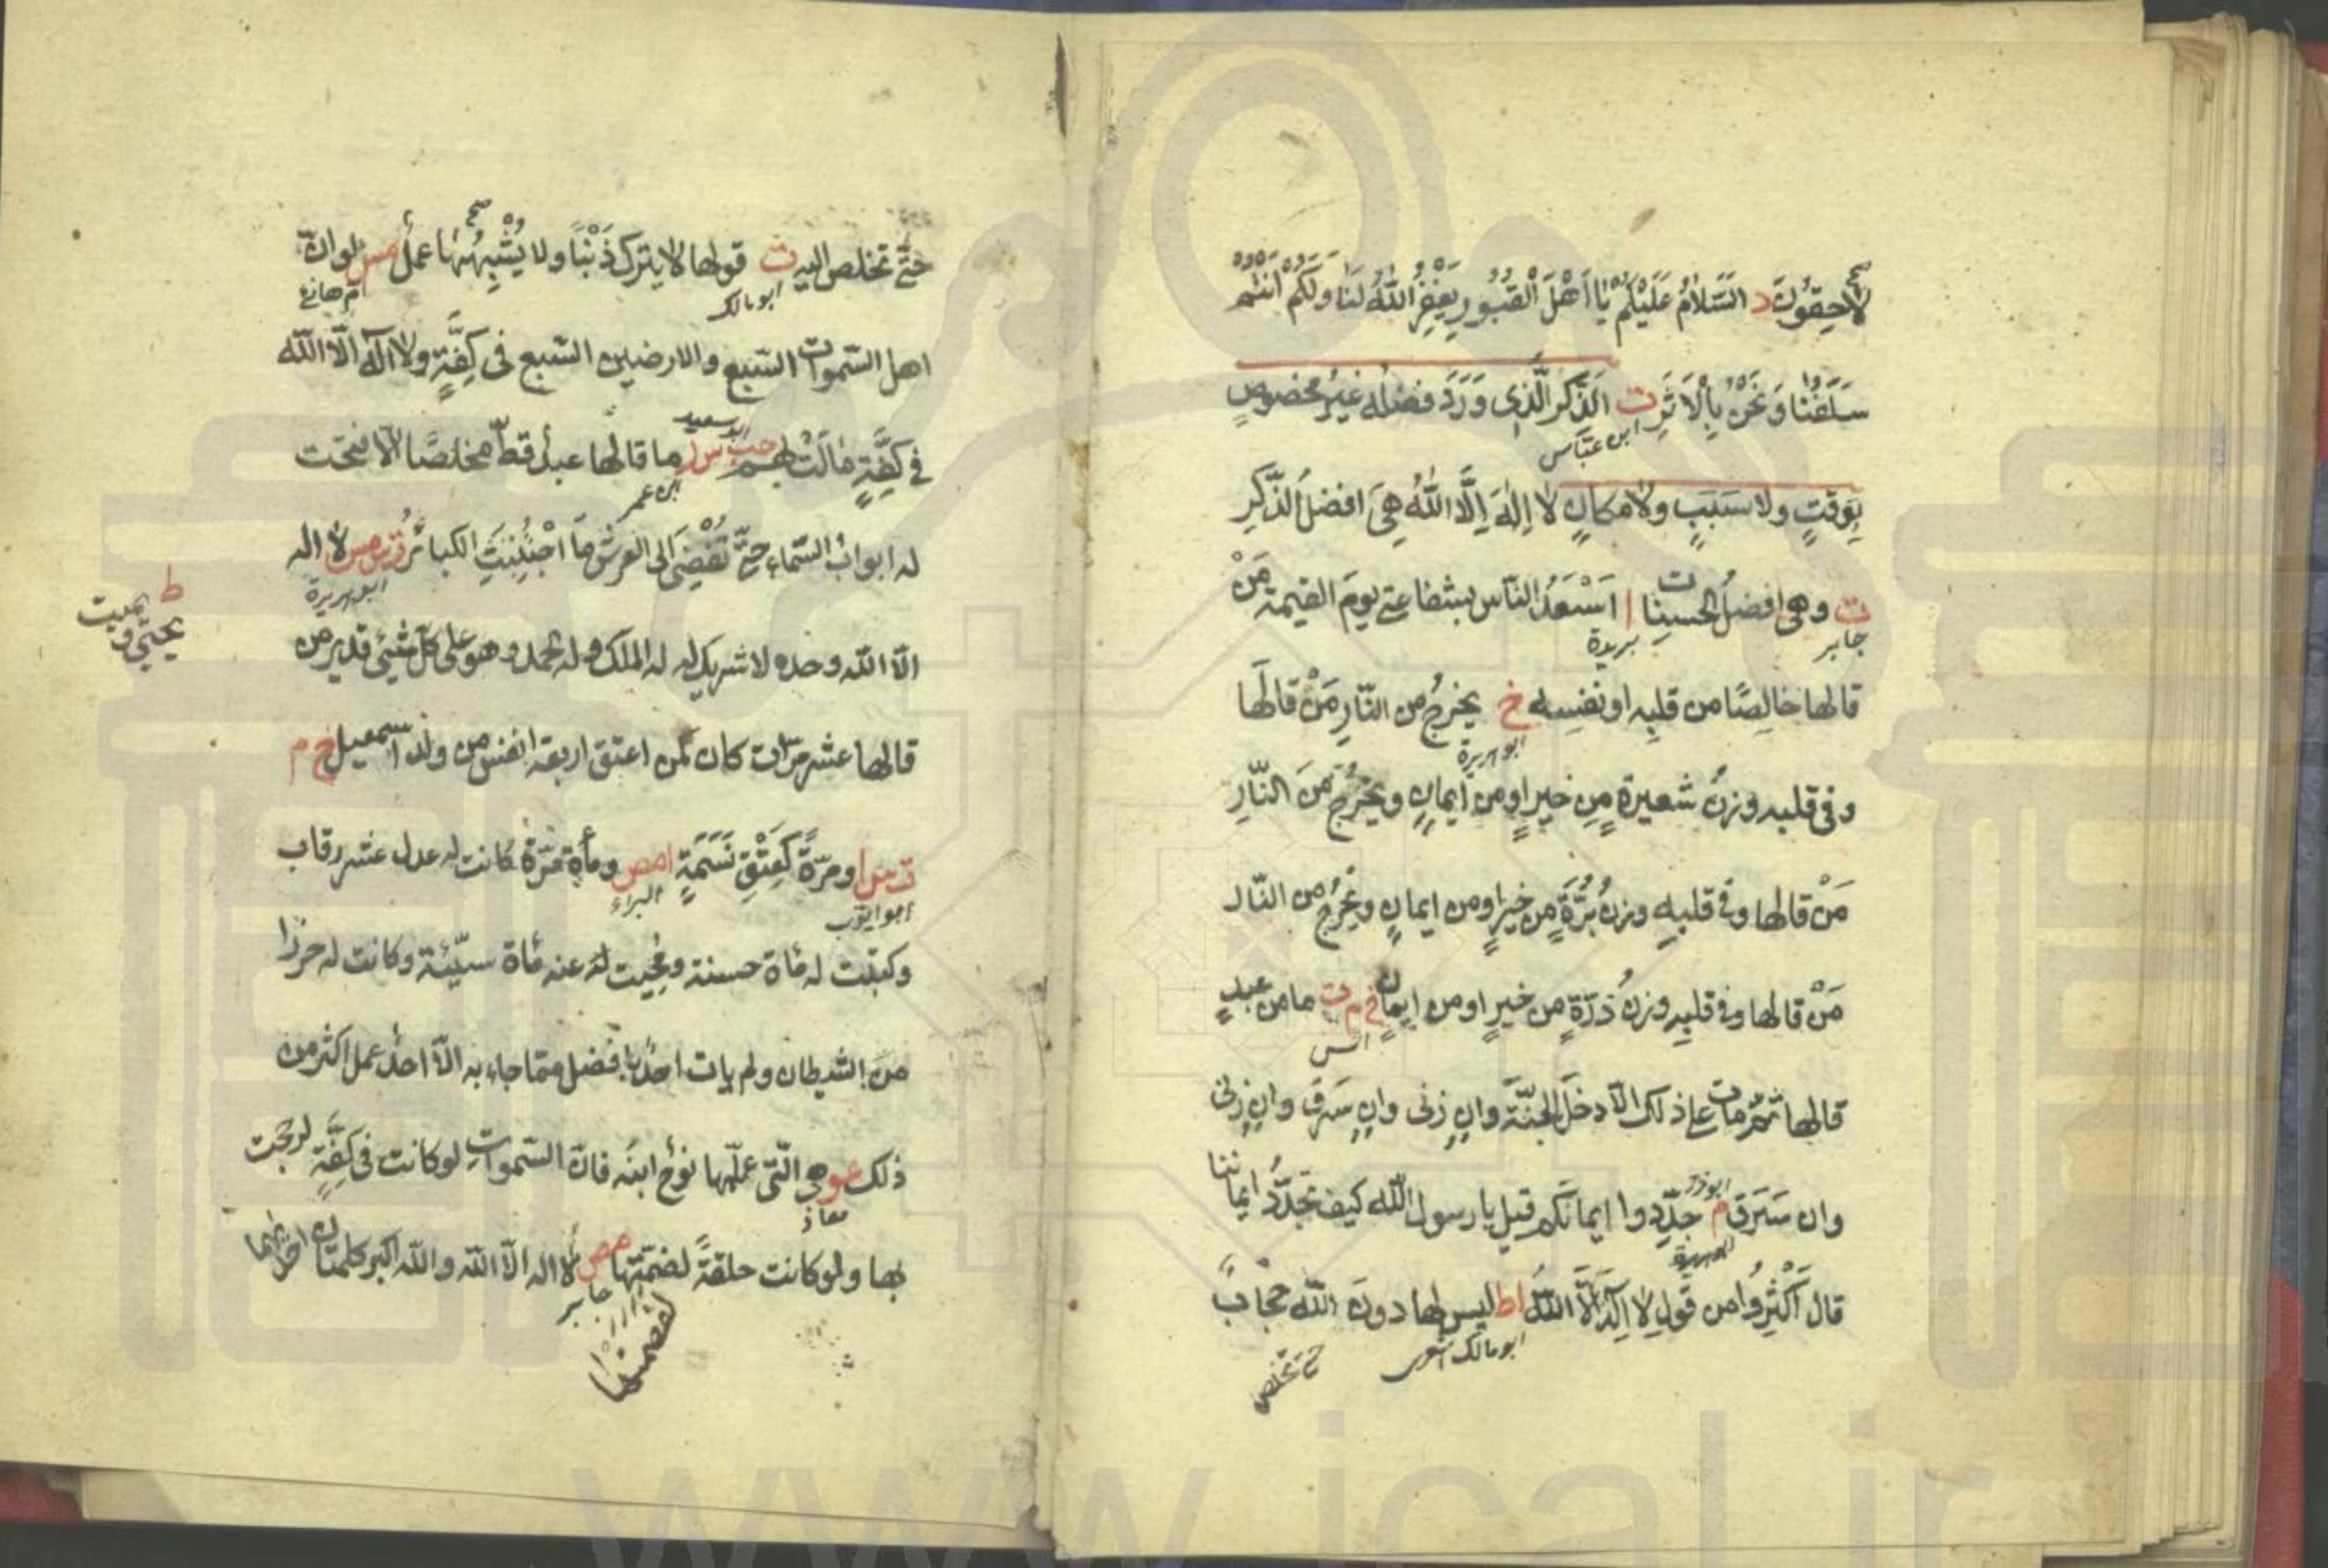 لاحِقُونَ د السَّلَامُ عَلَيْكُمْ يَا أَهْلَ الْقُبُورِ يَغْفِرُ اللهُ لَنَا وَلَكُمْ أَنْتُمْ
سَلَفُنَا وَنَحْنُ بِالْأَثَرِ ت الذِّكْرُ الَّذِى وَرَدَ فَضْلُه غَيْرُ مخصُوصٍ
ابن عبّاس
بِوَقتٍ ولا سَبَبٍ ولا مكانٍ لا إِلٰهَ إِلَّا اللهُ هِىَ افضلُ الذّكرِ
ت وهى افضلُ الحسنات ا اَسْعَدُ النّاس بشفاعتى يومَ القيمة مَنْ
جابر بريدة
قالها خالِصًا من قلبِه او نفسِه خ يخرجُ من النّارِ مَنْ قالَها
ابو هريرة
وفى قلبه وزنُ شعيرةٍ مِن خيرٍ او من ايمانٍ ويخرُج مِنَ النّارِ
مَنْ قالها وفى قلبِه وزنُ بُرَّةٍ من خيرٍ او من ايمانٍ ويخرُج من النّار
مَنْ قالها وفى قلبِه وزنُ ذرّةٍ من خيرٍ او من ايمانٍ خ م ت ما من عبدٍ
انس
قالها ثمّ مات على ذلك الّا دخل الجنّة وان زنى وان سَرَق وان زنى
وان سَرَق م جدّدوا ايمانكم قيل يا رسول الله كيف نجدّدُ ايماننا
ابوذر
ابو هريرة
قال أَكْثِرُوا من قولِ لا اِلهَ اِلَّا اللهُ اط ليس لها دونَ الله حجابٌ
ابو مالك اشعرى
حتى تخلص
حتّى تخلص اليه ت قولها لا يترك ذَنْبًا ولا يُشْبِهُهَا عملٌ مس لو انّ
ابو مالك ام هانئ
اهل السّموات السّبع والارضين السّبع فى كِفَّةٍ ولا اله الّا الله
فى كِفَّةٍ مَالَتْ بهم حب س ر ما قالها عبدٌ قطّ مخلصًا الّا فتحت
ابو سعيد
ابن عمر
له ابوابُ السّماء حتّى تُفْضِىَ الى العرش ما اجْتُنِبَتِ الكبائرُ ت س مس لا اله
ابو هريرة
الّا الله وحده لا شريك له له الملك وله الحمد وهو على كلّ شيئ قدير من
ط
يحيى ويميت
قالها عشر مرّات كان كمن اعتق اربعة انفس من ولد اسمعيل خ م
ت س ا ومرّةً كَعِتْقِ نَسَمَةٍ ا مص ومأة مرّة كانت له عدل عشر رقاب
ابو ايوب البراء
وكتبت له مأة حسنة ومُحيت له عنه مأة سيّئة وكانت له حرزا
من الشيطان ولم يات احدٌ بافضل ممّا جاء به الّا احدٌ عمل اكثر من
ذلك عو هى الّتى علّمها نوحٌ ابنَه فانّ السّموات لو كانت فى كِفَّةٍ لرجحت
معاذ
بها ولو كانت حلقةً لضمّتها مص لا اله الّا الله والله اكبر كلمتان احديهما
جابر
لقصمتها
www.ical.ir